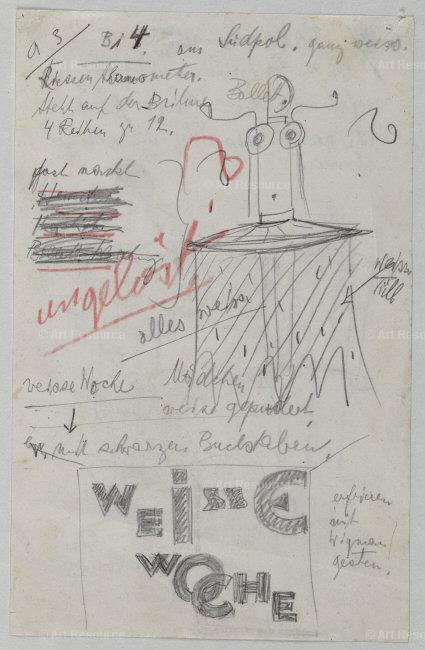 a 3 Bi 4. am Südpol. ganz weiss.
Riesenthermometer.
steht auf der Bühne
Ballett
4 Reihen zu 12.
fast nackt
ungelöst!
alles weiss
weisser
Tüll
weisse Woche
Mädchen
weiss gepudert
mit schwarzen Buchstaben.
WEISSE
WOCHE
erfrieren
mit
Wigman
gesten.
© Art Resource